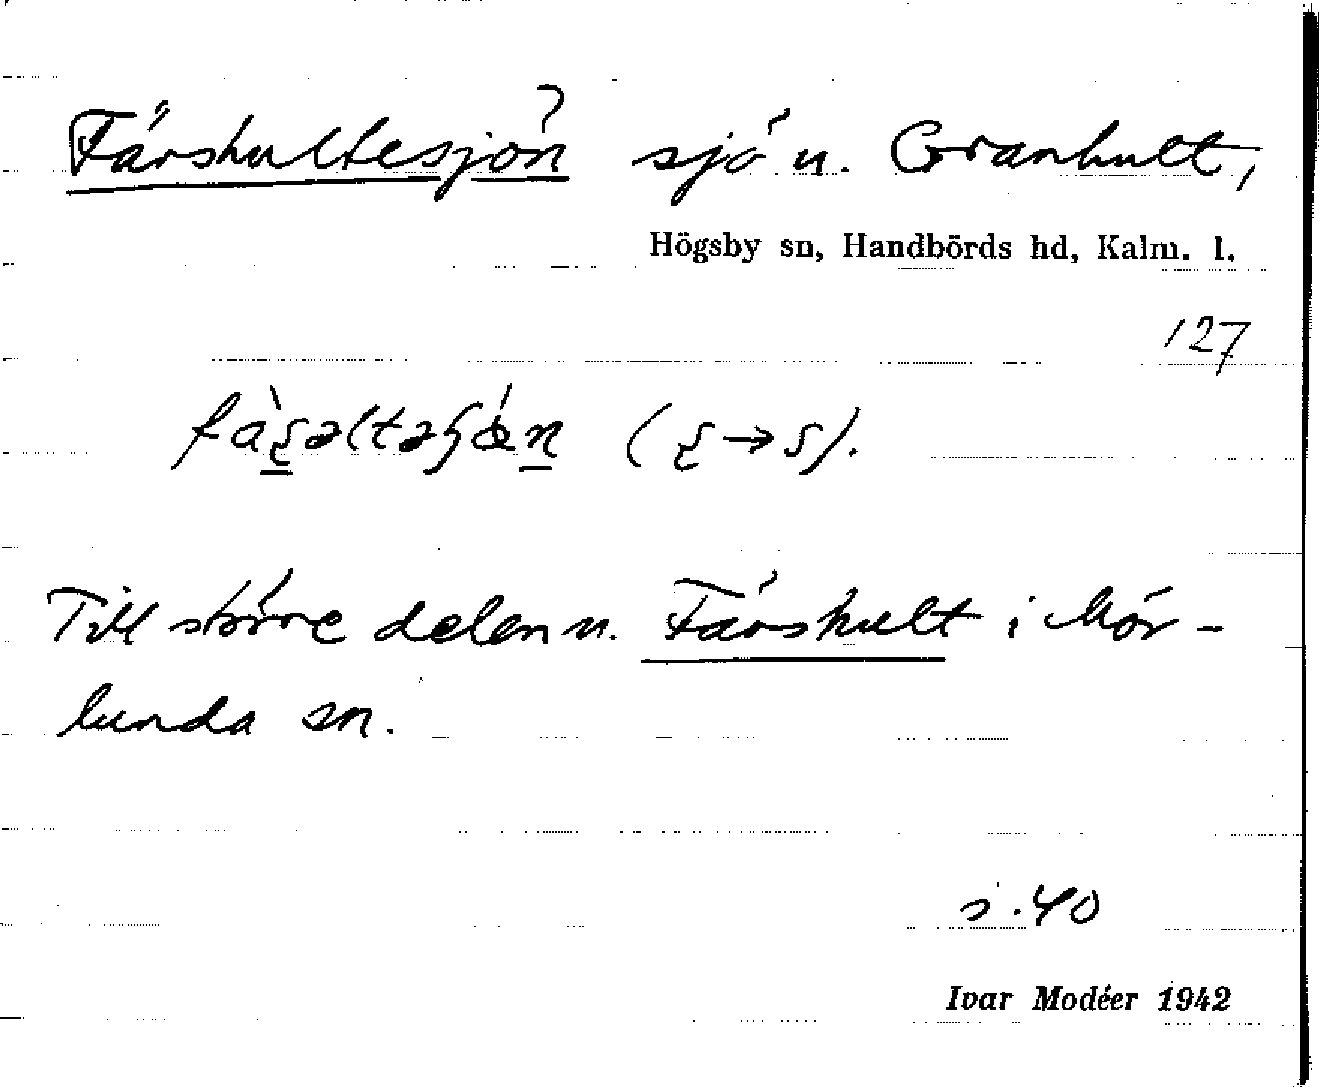 Färshultesjön sjö u. Granhult,
Högsby sn, Handbörds hd, Kalm. l.
127
Till större delen u. Färshult i Mör-
lunda sn.
s. 40
Ivar Modéer 1942